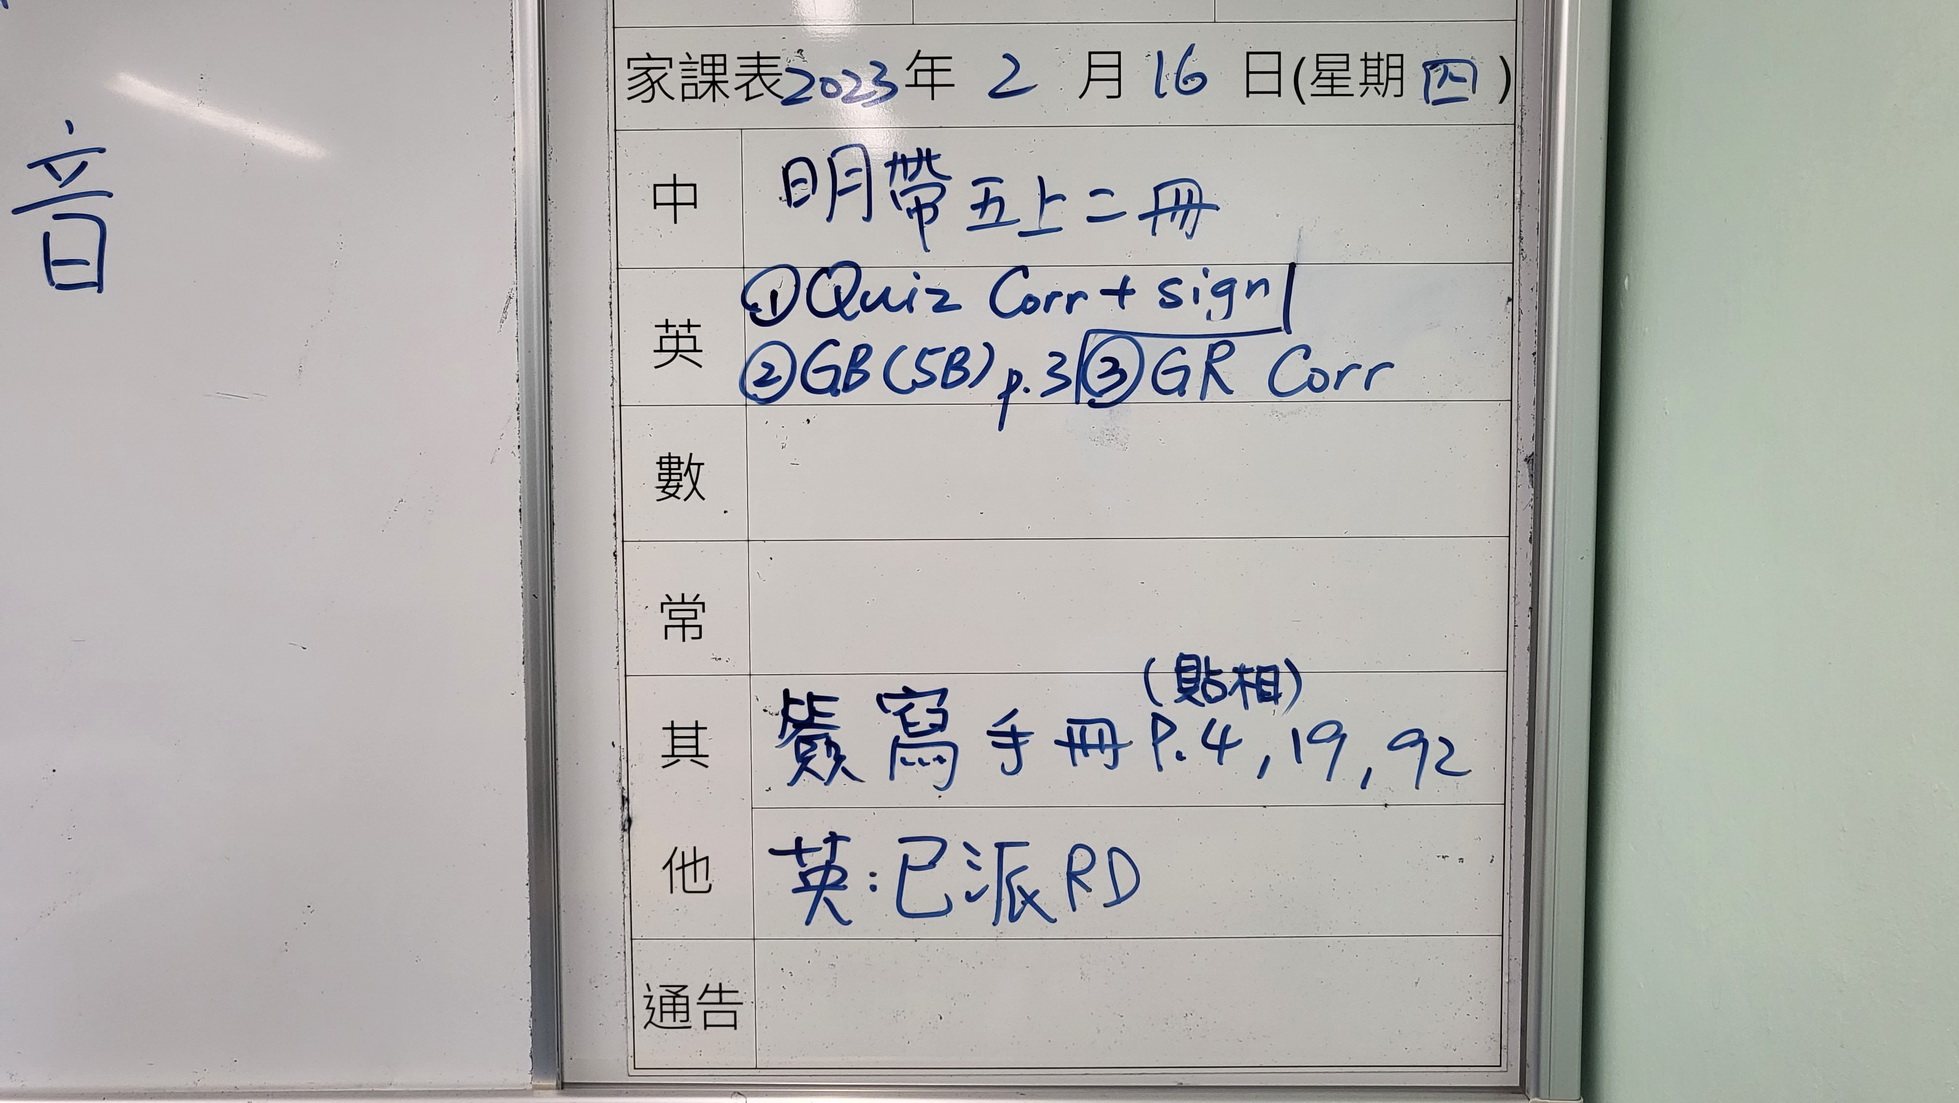 音
家課表2023年 2 月 16 日(星期 四)
中 明帶五上二冊
英 ①Quiz Corr + sign
②GB(5B) p.3 ③GR Corr
數
常
(貼相)
其 簽寫手冊 P.4, 19, 92
他 英:已派RD
通告